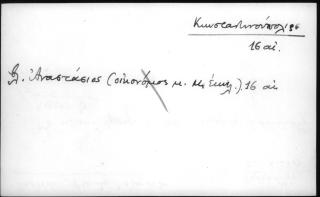 Κωνσταντινούπολις
16 αἰ.
Βλ. Ἀναστάσιος (οἰκονόμος μ. Μ. Ἐκκλ.) 16 αἰ